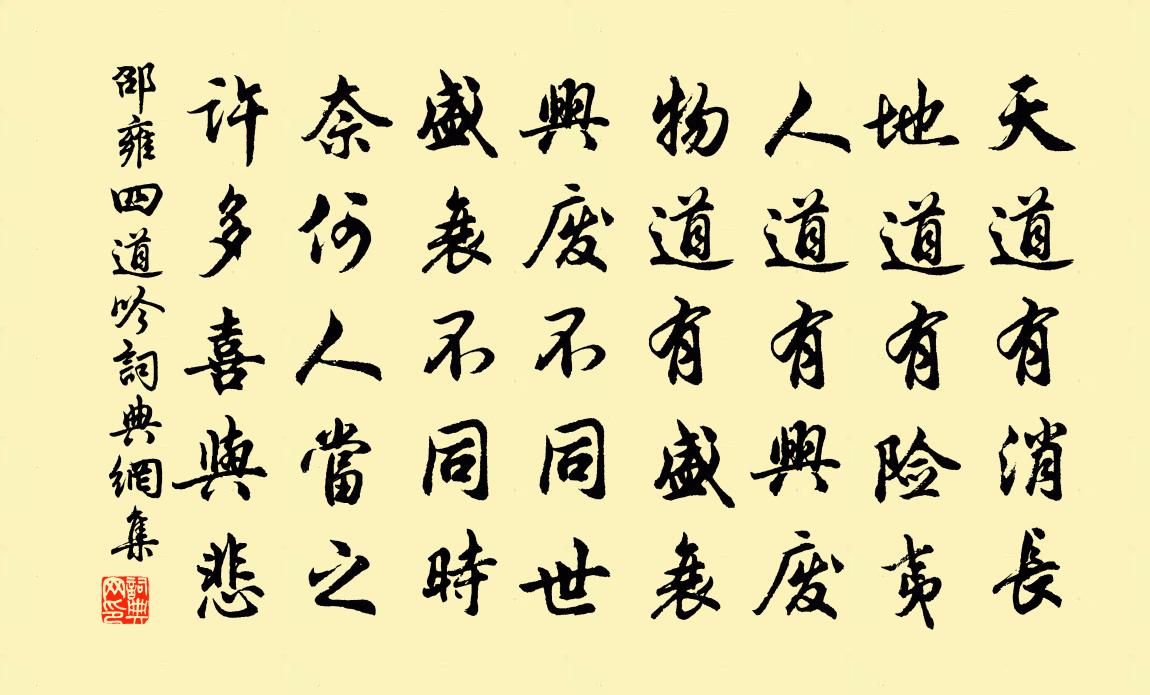 天道有消長
地道有险夷
人道有興廢
物道有盛衰
興廢不同世
盛衰不同時
奈何人當之
許多喜與悲
邵雍四道吟詞典網集
詞典网印